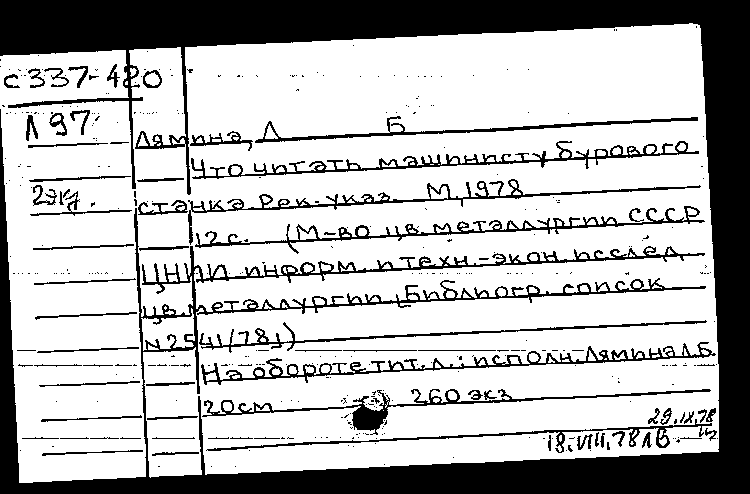 с337-420
Л97
Лямина, Л Б
Что читать машинисту бурового
2экз.
станка. Рек. указ. М, 1978
12с. (М-во цв. металлургии СССР
ЦНИИ информ. и техн.-экон. исслед.
цв. металлургии, Библиогр. список
N2541/78г)
На обороте тит. л.: исполн. Лямина Л.Б.
20см 260 экз
29.IX.78
18.VIII.78 ЛВ.